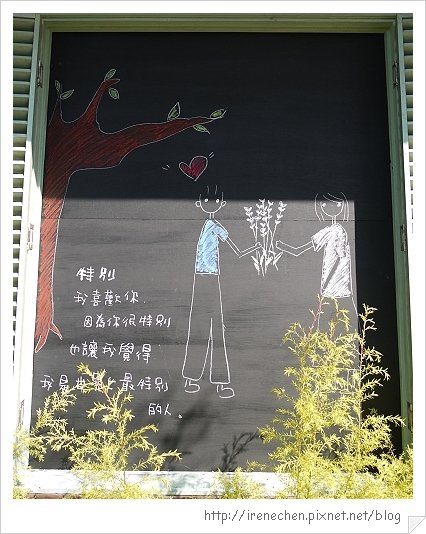 特別
我喜歡你.
因為你很特別
也讓我覺得
我是世界上最特別
的人。
http://irenechen.pixnet.net/blog